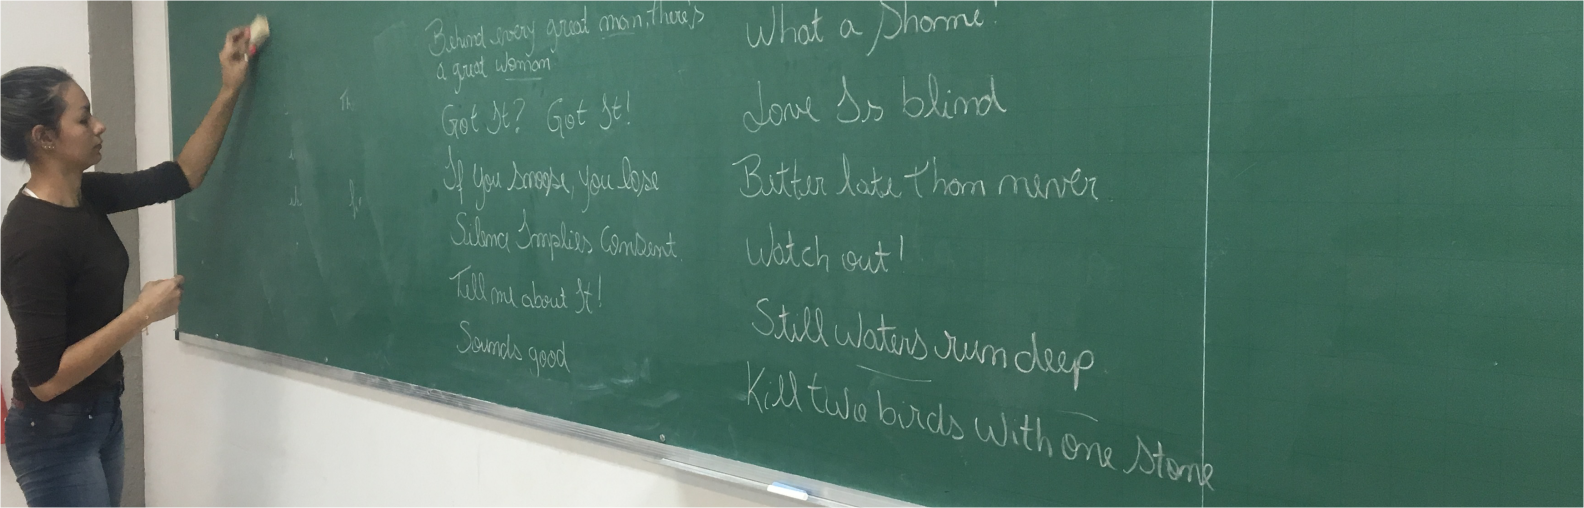 Behind every great man, there's
a great woman
Got It? Got It!
If you snooze, you lose
Silence Implies Consent.
Tell me about It!
Sounds good
What a Shame!
Love Is blind
Better late Than never
Watch out!
Still Waters run deep
Kill two birds With one Stone